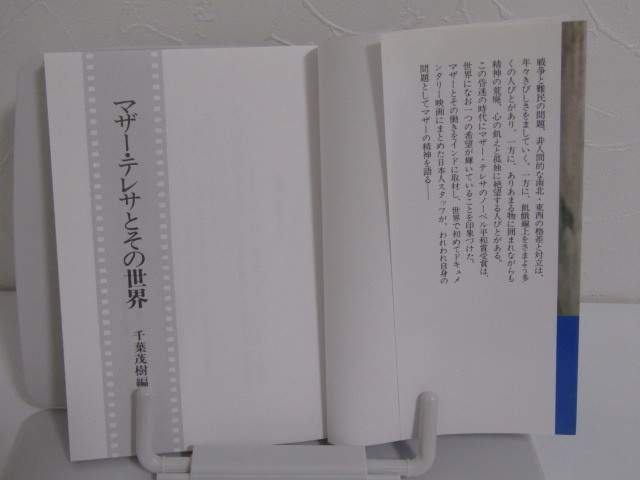 戦争と難民の問題、非人間的な南北・東西の格差と対立は、
年々きびしさをましていく。一方に、飢餓線上をさまよう多
くの人びとがあり、一方に、ありあまる物に囲まれながらも
精神の荒廃、心の飢えと孤独に絶望する人びとがある。
この昏迷の時代にマザー・テレサのノーベル平和賞受賞は、
世界になお一つの希望が輝いていることを印象づけた。
マザーとその働きをインドに取材し、世界で初めてドキュメ
ンタリー映画にまとめた日本人スタッフが、われわれ自身の
問題としてマザーの精神を語る——
マザー・テレサとその世界
千葉茂樹編